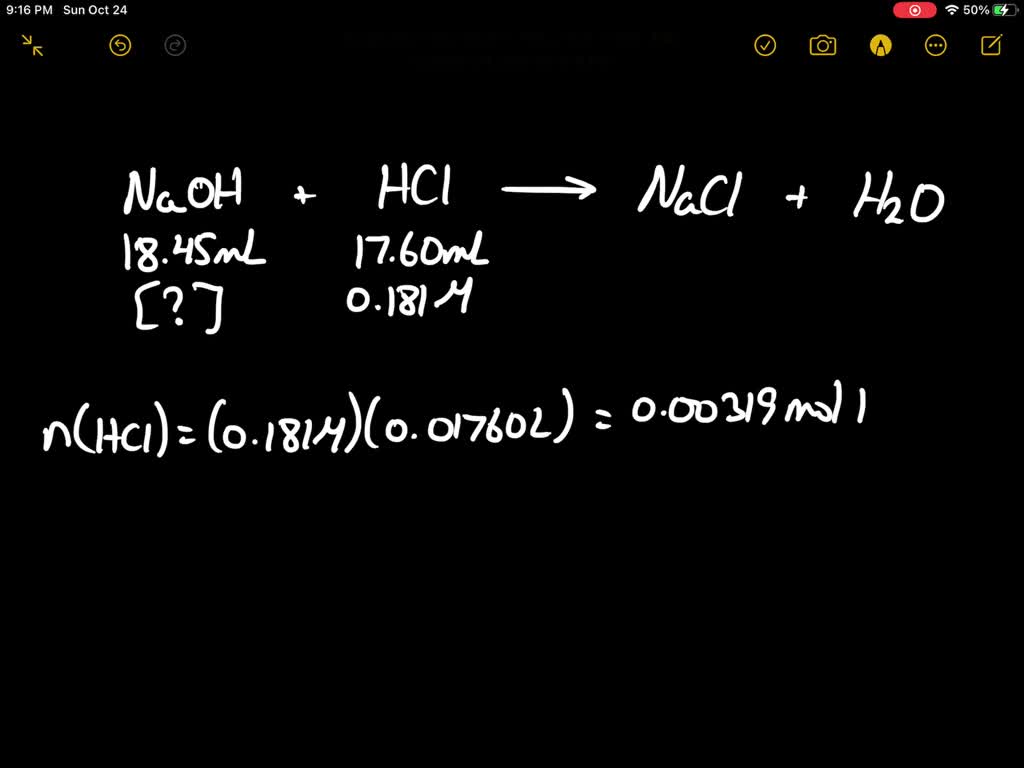 9:16 PM Sun Oct 24 50%
NaOH + HCl → NaCl + H2O
18.45mL 17.60mL
[?] 0.181M
n(HCl) = (0.181M)(0.01760L) = 0.00319 mol l